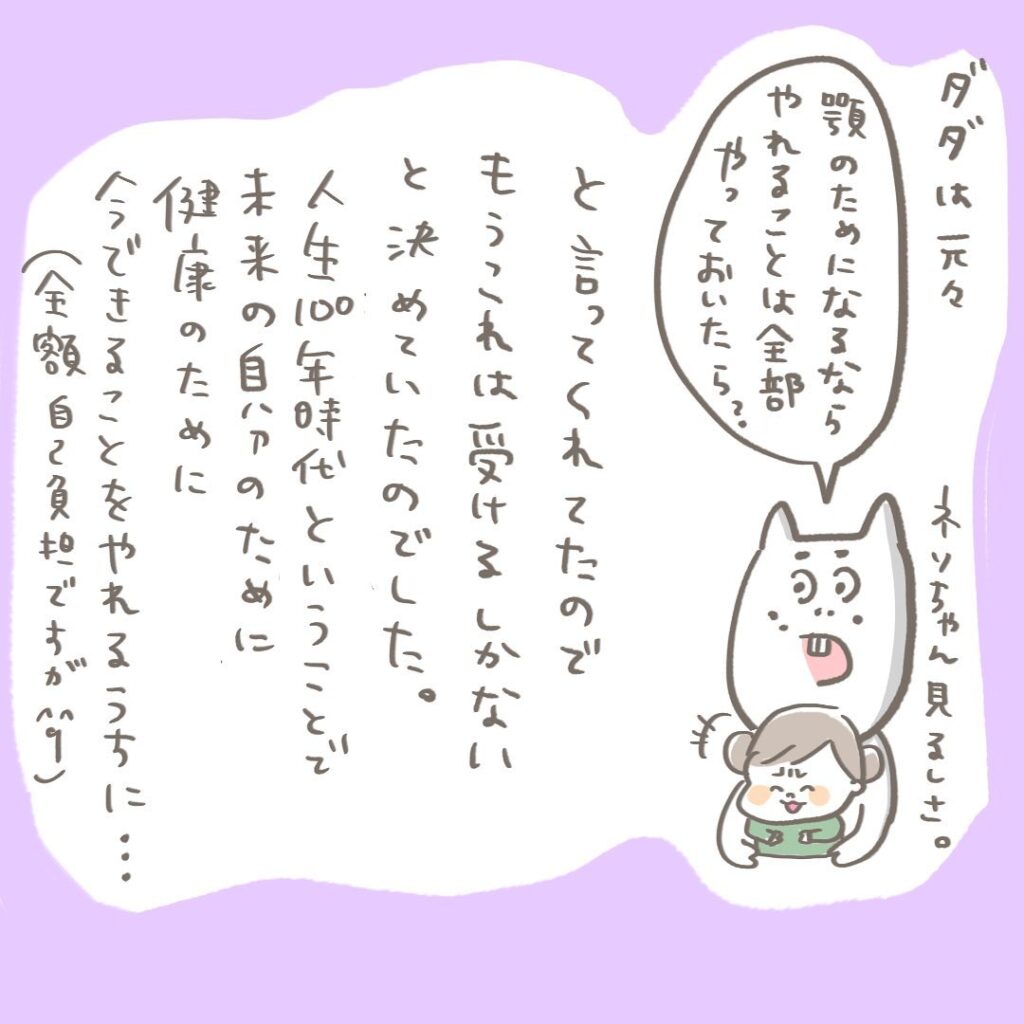 ダダは元々
顎のためになるなら
やれることは全部
やっておいたら?
ネソちゃん見るしさ。
と言ってくれてたので
もうこれは受けるしかない
と決めていたのでした。
人生100年時代ということで
未来の自分のために
健康のために
今できることをやれるうちに…
(全額自己負担ですが^^;)